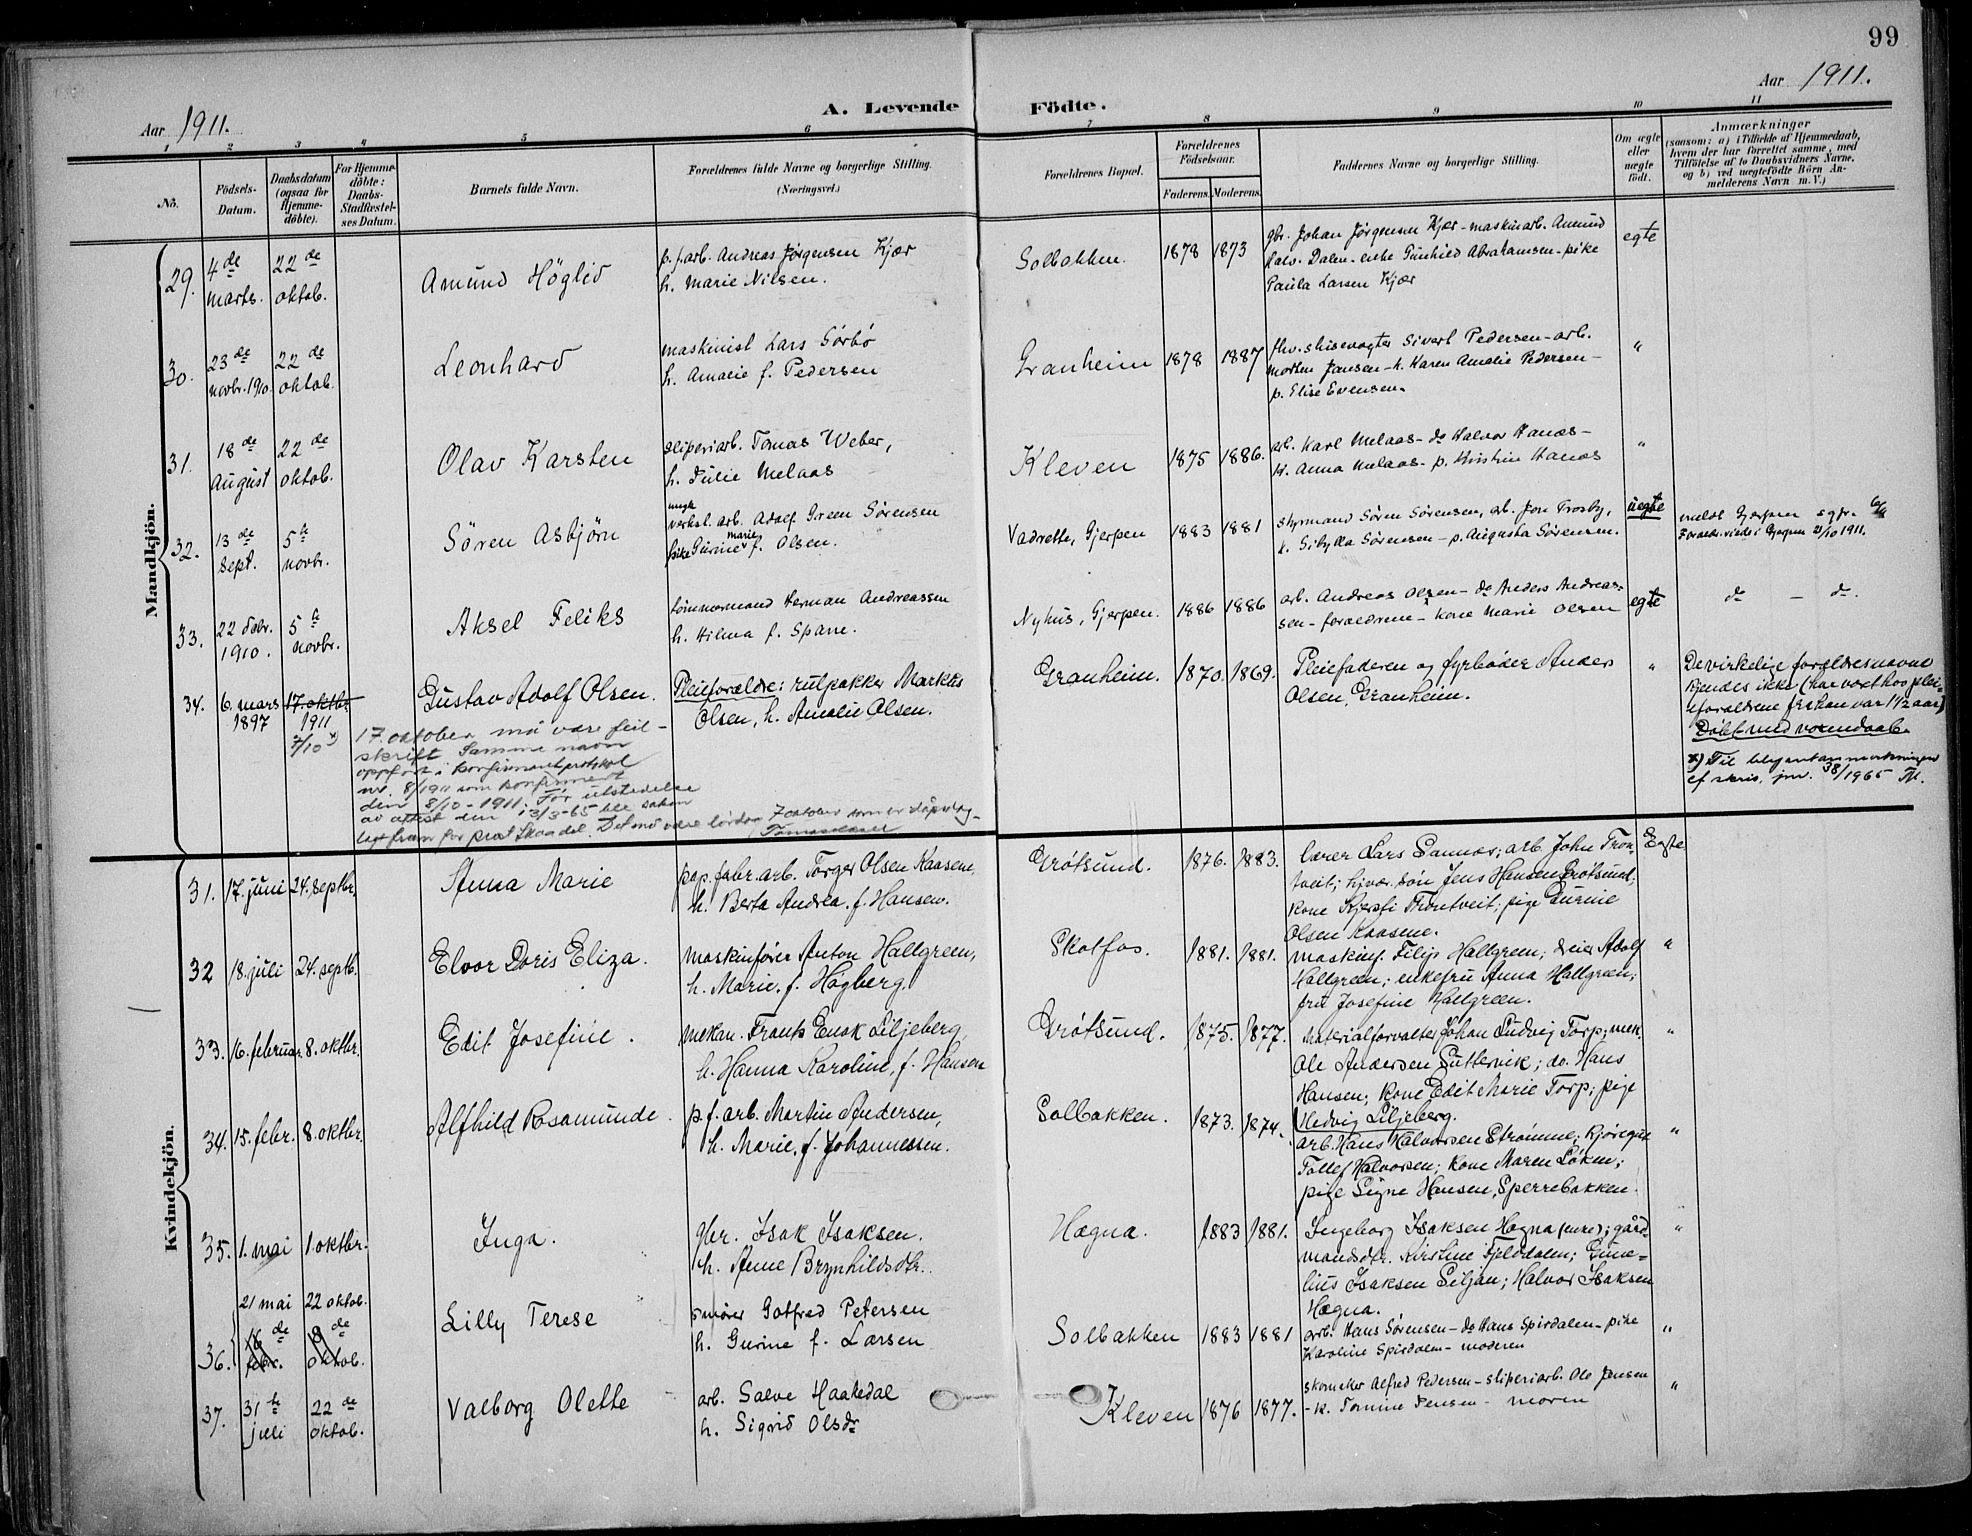 99
Aar 1911.
Aar 1911.
A. Levende Födte.
1 2 3 4 5 6 7 8 9 10 11
No.
Födsels-
Datum.
Daabsdatum
(ogsaa for
Hjemme-
döbte).
For Hjemme-
döbte:
Daabs-
Stadfæstel-
ses Datum.
Barnets fulde Navn.
Forældrenes fulde Navne og borgerlige Stilling.
(Næringsvei.)
Forældrenes Bopæl.
Forældrenes
Födselsaar.
Faderens. Moderens.
Faddernes Navne og borgerlige Stilling.
Om ægte
eller
uægte
födt.
Anmærkninger
(saasom: a) i Tilfælde af Hjemmedaab,
hvem der har forrettet samme, med
Tilföielse af to Daabsvidners Navne,
og b) ved uægtefödte Börn An-
melderens Navn m. V.)
Mandkjön.
29. 4de marts. 22de oktob.
Amund Höglid
p.f.arb. Andreas Jørgensen Kjær
h. Marie Nilsen.
Solbakken. 1878 1873
gbr. Johan Jørgensen Kjær - maskinarb. Amund
Halv. Dalen - enke Gunhild Abrahamsen - pike
Paula Larsen Kjær
egte
30. 23de novbr. 1910. 22de oktob.
Leonhard
maskinist Lars Sörbö
h. Amalie f. Pedersen
Granheim 1878 1887
fhv. slusevogter Sivert Pedersen - arb.
Morten Jansen - k. Karen Amalie Pedersen -
p. Elise Evensen.
"
31. 18de August 22de oktob.
Olav Karsten
sliperiarb. Tomas Weber,
h. Julie Melaas
Kleven 1875 1886.
arb. Karl Melaas - do Halvor Hanæs -
k. Anna Melaas - p. Kristine Hanæs
"
32. 13de sept. 5te novbr.
Sören Asbjörn
ungk.
verkst. arb. Adolf Green Sörensen
pike Gurine Marie f. Olsen.
Vadrette, Gjerpen 1883 1881
styrmand Sören Sörensen, arb. Jon Trosby,
k. Sibylla Sörensen - p. Augusta Sörensen.
uegte
meldt Gjerpen sgpr.
Foreldr. viede i Gjerpen 21/10 1911.
33. 22 febr. 1910. 5te novbr.
Aksel Feliks
tömmermand Herman Andreassen
h. Hilma f. Spane.
Nyhus, Gjerpen. 1886 1886
arb. Andreas Olsen - do Anders Andreas-
sen - foreldrene - kone Marie Olsen
egte
do - do.
34. 6. mars 1897 17. oktbr. 1911
7/10 x)
Gustav Adolf Olsen.
Pleieforældre: rulpakker Markus
Olsen, h. Amalie Olsen.
Granheim. 1870. 1869.
Pleiefaderen og fyrböder Anders
Olsen, Granheim.
"
De virkelige forældres navne
kjendes ikke (har vært hos plei-
eforældrene fra han var 1 1/2 aar)
Döbt med voxendaab.
x) Til blyantanmerkningen
cf skriv. jnr. 38/1965
17. oktober må være feil-
skrift. Samme navn
oppført i konfirmantprotokol
nr. 8/1911 som konfirmert
den 8/10-1911. Før utstedelse
av attest den 13/3-65 ble saken
lagt fram for prost Skaadel. Det må være lørdag 7 oktober som er dåpsdag -
Kvindekjön.
31. 17. juni 24. septbr.
Anna Marie
pap. fabr. arb. Torger Olsen Kaasene,
h. Berta Andrea, f. Hansen.
Grötsund. 1876. 1883.
Lærer Lars Sannæs; arb. John Tron-
tveit; hjvær. sön Jens Hansen Grötsund;
kone Kjersti Trontveit; pige Gurine
Olsen Kaasene.
Egte
32 18. juli 24. septb.
Elvor Doris Eliza.
maskinförer Anton Hallgreen,
h. Marie, f. Högberg.
Skotfos. 1881. 1881.
maskinf. Filip Hallgreen; dreier Adolf
Hallgreen; enkefru Anna Hallgreen;
fru Josefine Hallgreen.
"
33. 16. februar. 8. oktbr.
Edit Josefine.
mekan. Frants Enok Liljeberg
h. Hanna Karoline, f. Hansen
Grötsund. 1875. 1877.
Materialforvalter Johan Ludvig Torp; mek.
Ole Andersen Guttervik; do. Hans
Hansen; kone Edit Marie Torp; pige
Hedvig Liljeberg.
"
34. 15. febr. 8. oktbr.
Alfhild Rosamunde.
p.f. arb. Martin Andersen,
h. Marie, f. Johannessen.
Solbakken. 1873. 1874.
arb. Hans Halvorsen Strömme; kjöregut
Tollef Halvorsen; kone Maren Löken;
pige Signe Hansen, Sperrebakken.
"
35. 1. mai 1. oktbr.
Inga.
gbr. Isak Isaksen.
h. Anne Brynhildsdtr.
Hægna. 1883 1881.
Ingeborg Isaksen Hægna (enke); gård-
mandsdtr. Kirstine Fjelddalen; Gune-
lius Isaksen Siljan; Halvor Isaksen
Hægna.
"
36. 21 mai 22 oktob.
16de febr. 8de oktob.
Lilly Terese
smörer Gotfred Petersen
h. Gurine f. Larsen
Solbakken 1883 1881
arb. Hans Sörensen - do Hans Spirdalen - pike
Karoline Spirdalen - moderen
"
37. 31te juli 22de oktob.
Valborg Olette
arb. Salve Haakedal
h. Sigrid Olsdr
Kleven 1876 1877.
skomaker Alfred Pedersen - sliperiarb. Ole Jansen
- k. Tomine Jensen - moren
"